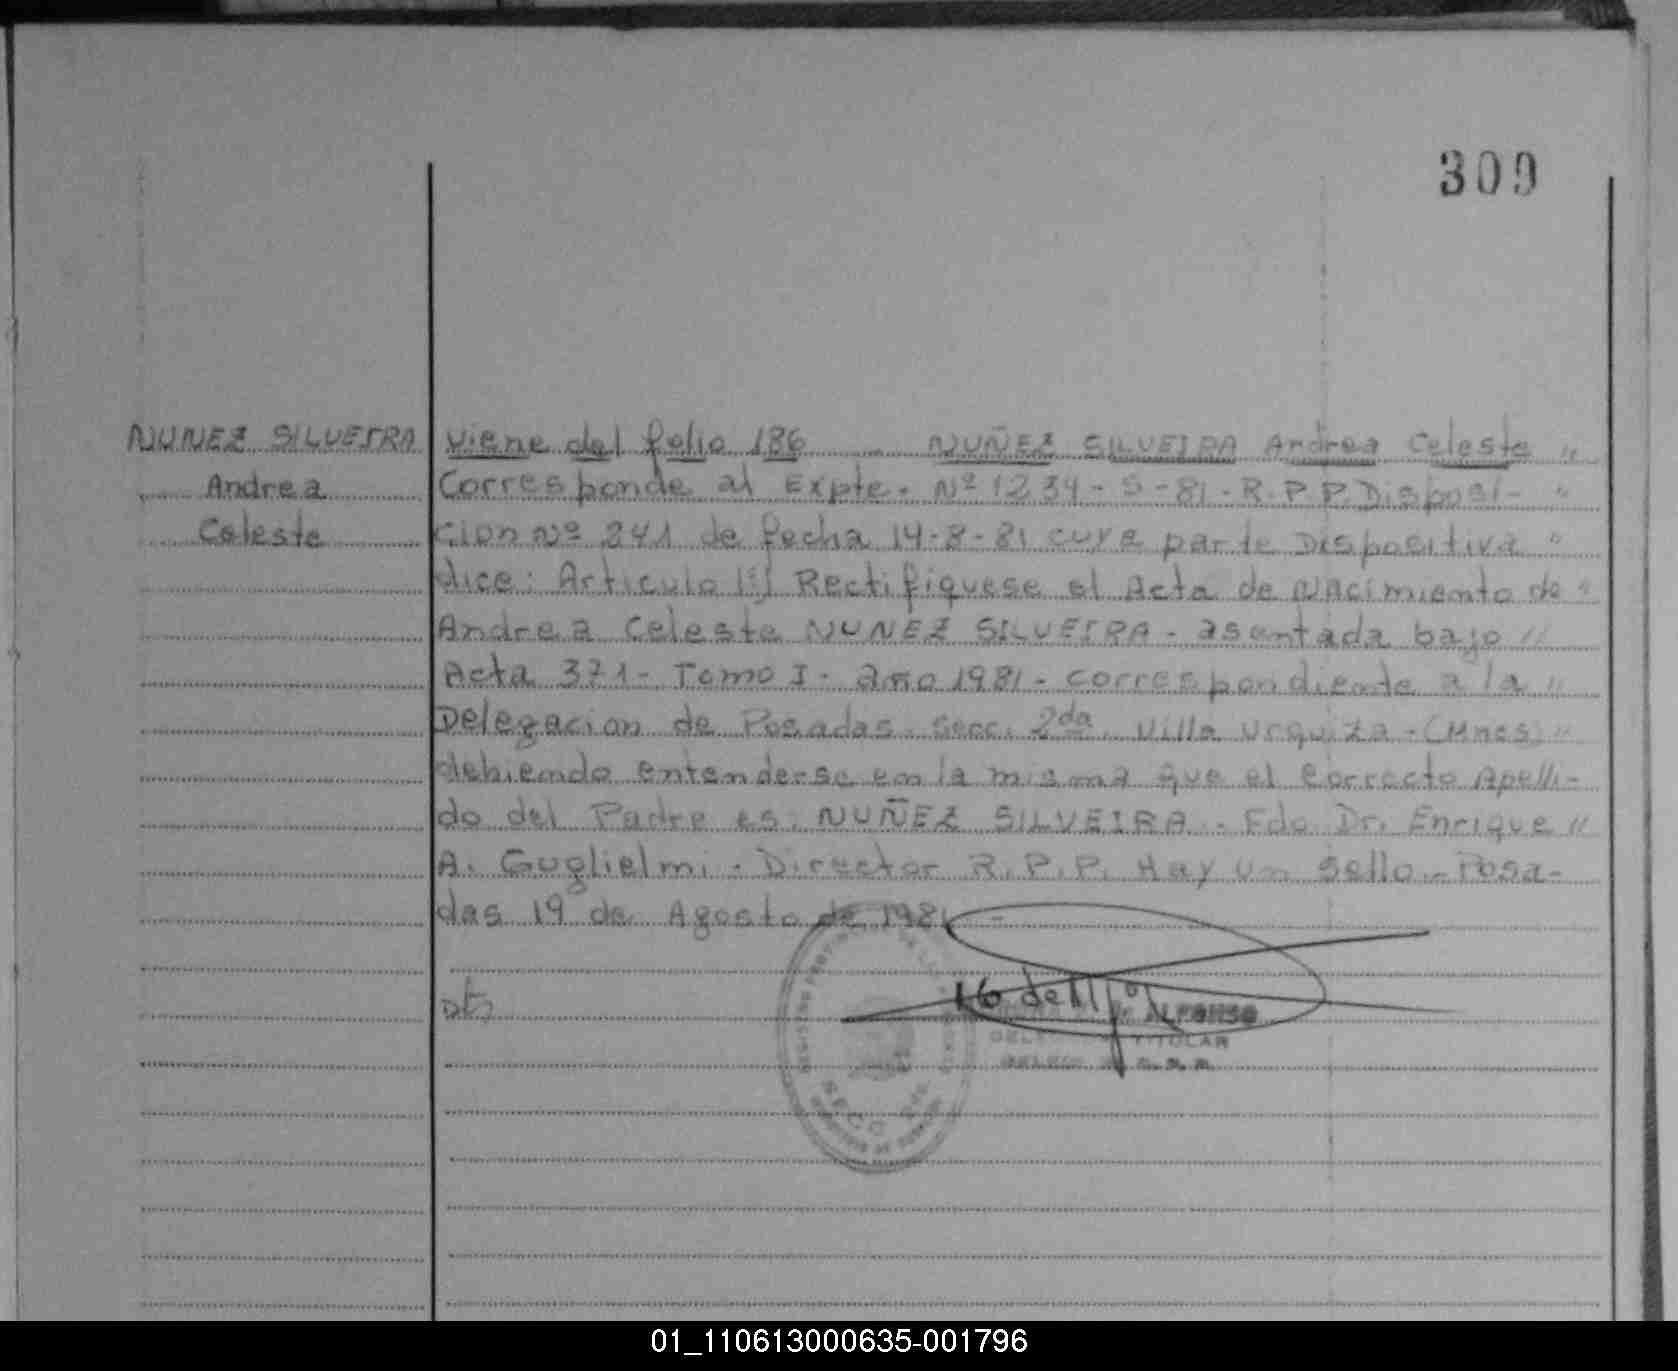 309
NUNEZ SILVEIRA
Andrea
Celeste
viene del folio 186 NUÑEZ SILVEIRA Andrea Celeste "
Corresponde al Expte. Nº 1234-S-81-R.P.P. Disposi- "
cion Nº 241 de fecha 14-8-81 cuya parte Dispositiva "
dice: Articulo 1º) Rectifiquese el Acta de Nacimiento de "
Andrea Celeste NUNEZ SILVEIRA - asentada bajo "
Acta 371- Tomo I - año 1981 - correspondiente a la "
Delegacion de Posadas - Secc. 2da. Villa Urquiza - (Mnes) "
debiendo entenderse en la misma que el correcto Apelli-
do del Padre es: NUÑEZ SILVEIRA - Fdo Dr. Enrique "
A. Guglielmi - Director R.P.P. Hay un sello - Posa-
das 19 de Agosto de 1981 -
ALFONSO
TITULAR
SECC 2da.
01_110613000635-001796